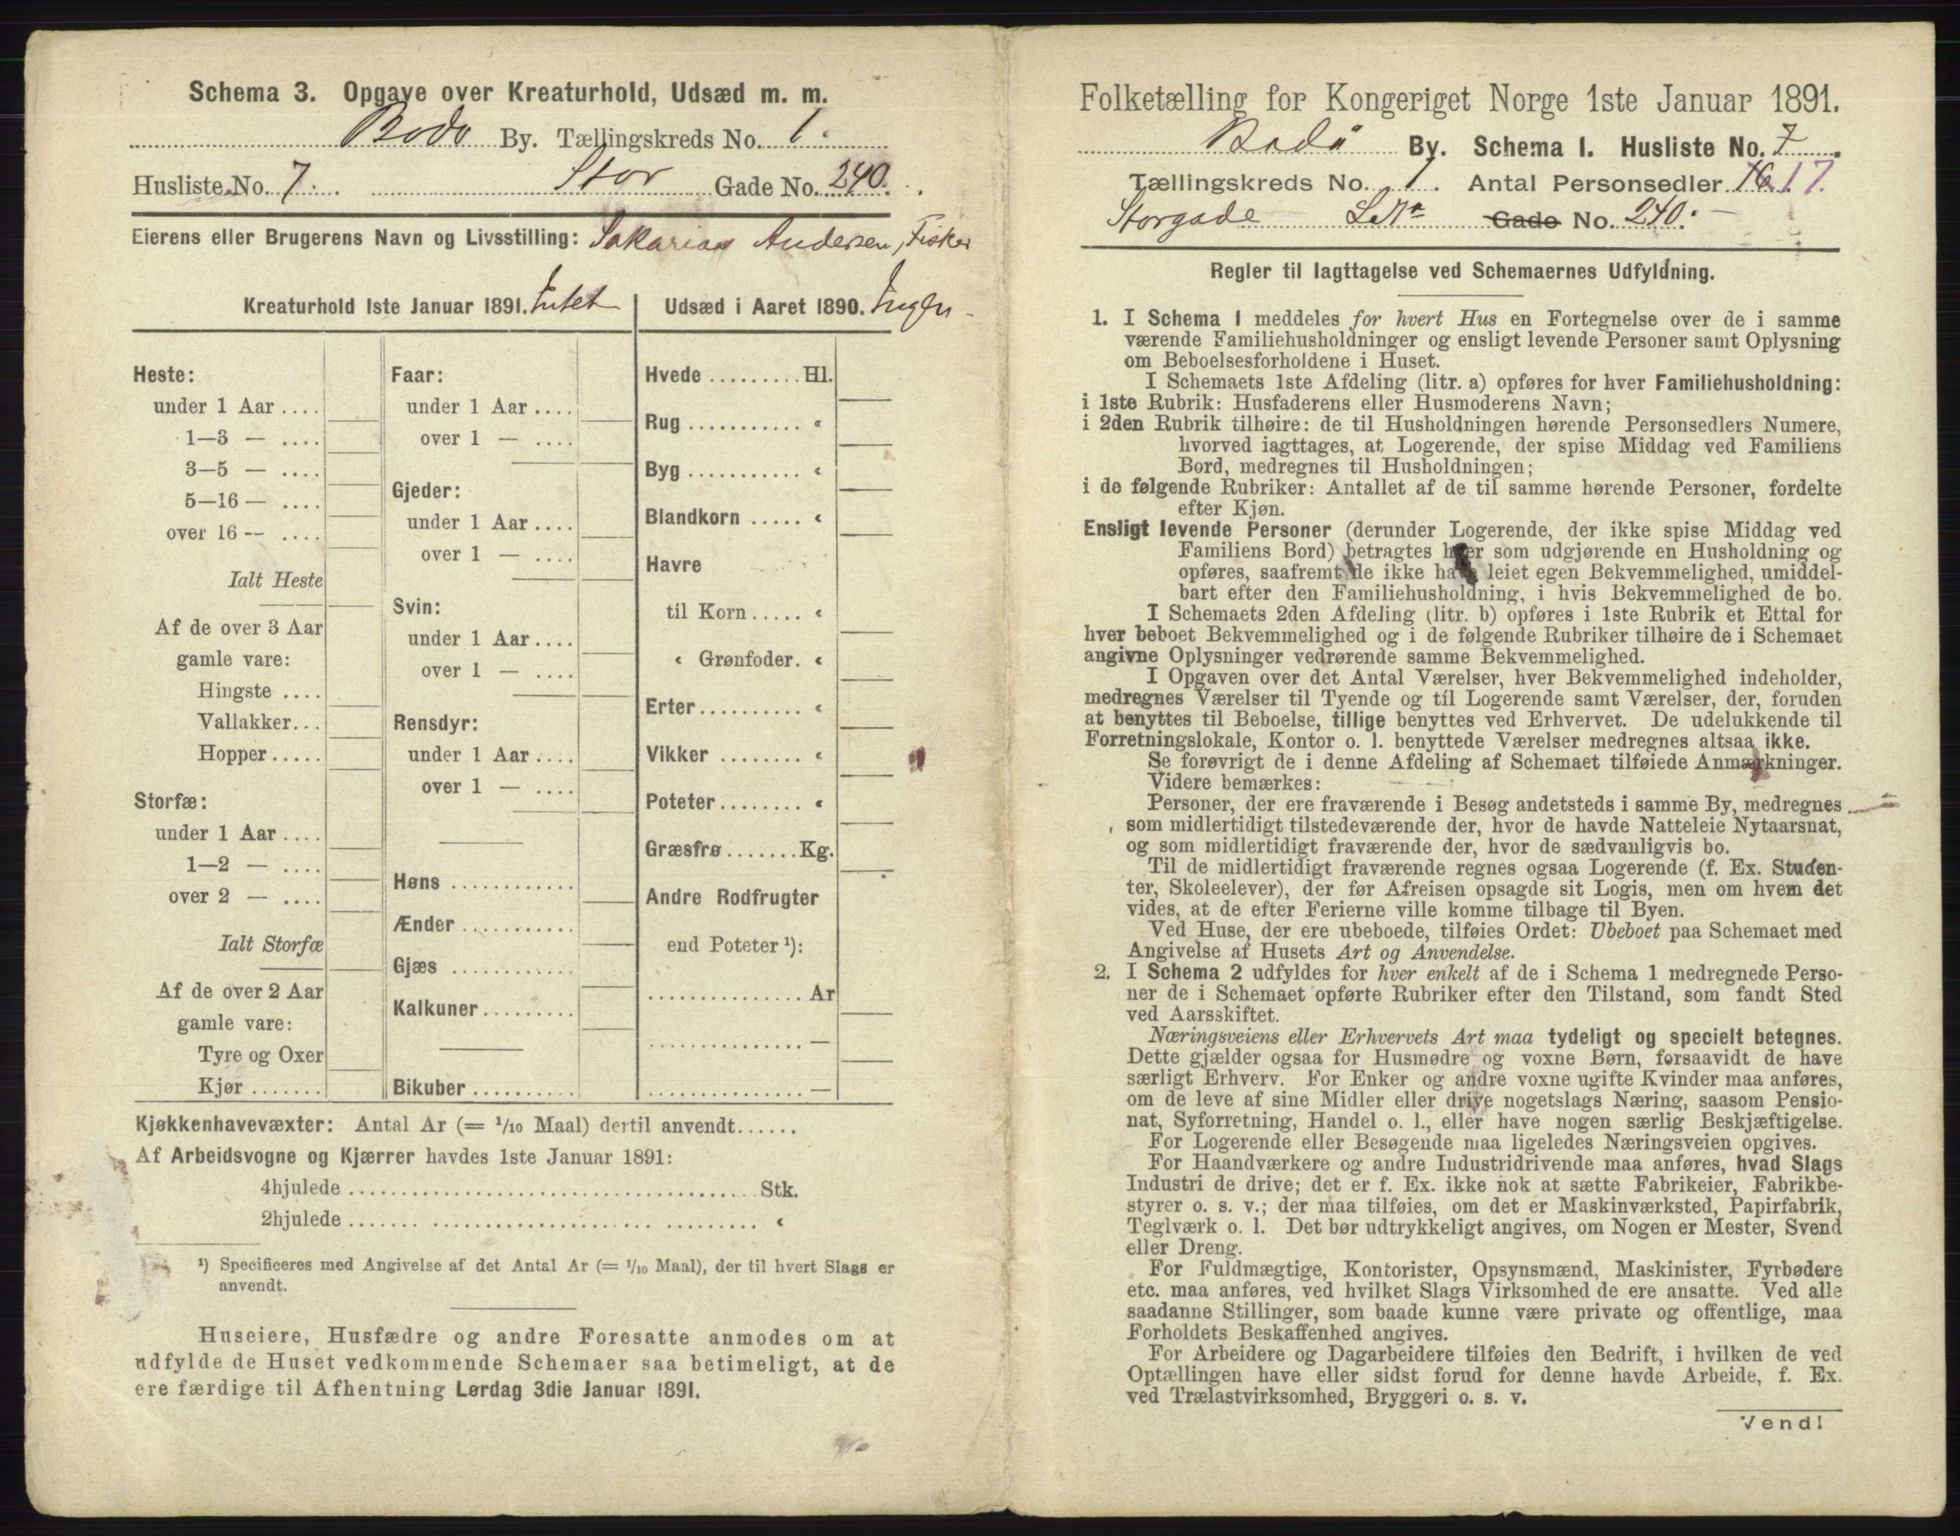 Schema 3. Opgave over Kreaturhold, Udsæd m. m.
Bodø By. Tællingskreds No. 1.
Husliste No. 7. Stor Gade No. 240.
Eierens eller Brugerens Navn og Livsstilling: Sakarias Andersen, Fisker
Kreaturhold 1ste Januar 1891. Intet
Heste:
under 1 Aar....
1—3 — ....
3—5 — ....
5—16 — ....
over 16 — ....
Ialt Heste
Af de over 3 Aar
gamle vare:
Hingste ....
Vallakker...
Hopper.....
Storfæ:
under 1 Aar....
1—2 — ....
over 2 — ....
Ialt Storfæ
Af de over 2 Aar
gamle vare:
Tyre og Oxer
Kjør.......
Faar:
under 1 Aar....
over 1 — ....
Gjeder:
under 1 Aar....
over 1 — ....
Svin:
under 1 Aar....
over 1 — ....
Rensdyr:
under 1 Aar....
over 1 — ....
Høns...........
Ænder..........
Gjæs...........
Kalkuner........
Bikuber.........
Udsæd i Aaret 1890. Ingen
Hvede.........Hl.
Rug........... «
Byg........... «
Blandkorn..... «
Havre
til Korn..... «
« Grønfoder. «
Erter.......... «
Vikker........ «
Poteter........ «
Græsfrø.......Kg.
Andre Rodfrugter
end Poteter ¹):
...............Ar
...............—
...............—
Kjøkkenhavevæxter: Antal Ar (= 1/10 Maal) dertil anvendt......
Af Arbeidsvogne og Kjærrer havdes 1ste Januar 1891:
4hjulede........................................Stk.
2hjulede........................................ «
¹) Specificeres med Angivelse af det Antal Ar (= 1/10 Maal), der til hvert Slags er
anvendt.
Huseiere, Husfædre og andre Foresatte anmodes om at
udfylde de Huset vedkommende Schemaer saa betimeligt, at de
ere færdige til Afhentning Lørdag 3die Januar 1891.
Folketælling for Kongeriget Norge 1ste Januar 1891.
Bodø By. Schema I. Husliste No. 7.
Tællingskreds No. 1. Antal Personsedler 16. 17.
Storgade L.No Gade No. 240.
Regler til Iagttagelse ved Schemaernes Udfyldning.
1. I Schema 1 meddeles for hvert Hus en Fortegnelse over de i samme
værende Familiehusholdninger og ensligt levende Personer samt Oplysning
om Beboelsesforholdene i Huset.
I Schemaets 1ste Afdeling (litr. a) opføres for hver Familiehusholdning:
i 1ste Rubrik: Husfaderens eller Husmoderens Navn;
i 2den Rubrik tilhøire: de til Husholdningen hørende Personsedlers Numere,
hvorved iagttages, at Logerende, der spise Middag ved Familiens
Bord, medregnes til Husholdningen;
i de følgende Rubriker: Antallet af de til samme hørende Personer, fordelte
efter Kjøn.
Ensligt levende Personer (derunder Logerende, der ikke spise Middag ved
Familiens Bord) betragtes hver som udgjørende en Husholdning og
opføres, saafremt de ikke have leiet egen Bekvemmelighed, umiddel-
bart efter den Familiehusholdning, i hvis Bekvemmelighed de bo.
I Schemaets 2den Afdeling (litr. b) opføres i 1ste Rubrik et Ettal for
hver beboet Bekvemmelighed og i de følgende Rubriker tilhøire de i Schemaet
angivne Oplysninger vedrørende samme Bekvemmelighed.
I Opgaven over det Antal Værelser, hver Bekvemmelighed indeholder,
medregnes Værelser til Tyende og til Logerende samt Værelser, der, foruden
at benyttes til Beboelse, tillige benyttes ved Erhvervet. De udelukkende til
Forretningslokale, Kontor o. l. benyttede Værelser medregnes altsaa ikke.
Se forøvrigt de i denne Afdeling af Schemaet tilføiede Anmærkninger.
Videre bemærkes:
Personer, der ere fraværende i Besøg andetsteds i samme By, medregnes
som midlertidigt tilstedeværende der, hvor de havde Natteleie Nytaarsnat,
og som midlertidigt fraværende der, hvor de sædvanligvis bo.
Til de midlertidigt fraværende regnes ogsaa Logerende (f. Ex. Studen-
ter, Skoleelever), der før Afreisen opsagde sit Logis, men om hvem det
vides, at de efter Ferierne ville komme tilbage til Byen.
Ved Huse, der ere ubeboede, tilføies Ordet: Ubeboet paa Schemaet med
Angivelse af Husets Art og Anvendelse.
2. I Schema 2 udfyldes for hver enkelt af de i Schema 1 medregnede Perso-
ner de i Schemaet opførte Rubriker efter den Tilstand, som fandt Sted
ved Aarsskiftet.
Næringsveiens eller Erhvervets Art maa tydeligt og specielt betegnes.
Dette gjælder ogsaa for Husmødre og voxne Børn, forsaavidt de have
særligt Erhverv. For Enker og andre voxne ugifte Kvinder maa anføres,
om de leve af sine Midler eller drive nogetslags Næring, saasom Pensio-
nat, Syforretning, Handel o. l., eller have nogen særlig Beskjæftigelse.
For Logerende eller Besøgende maa ligeledes Næringsveien opgives.
For Haandværkere og andre Industridrivende maa anføres, hvad Slags
Industri de drive; det er f. Ex. ikke nok at sætte Fabrikeier, Fabrikbe-
styrer o. s. v.; der maa tilføies, om det er Maskinværksted, Papirfabrik,
Teglværk o. l. Det bør udtrykkeligt angives, om Nogen er Mester, Svend
eller Dreng.
For Fuldmægtige, Kontorister, Opsynsmænd, Maskinister, Fyrbødere
etc. maa anføres, ved hvilket Slags Virksomhed de ere ansatte. Ved alle
saadanne Stillinger, som baade kunne være private og offentlige, maa
Forholdets Beskaffenhed angives.
For Arbeidere og Dagarbeidere tilføies den Bedrift, i hvilken de ved
Optællingen have eller sidst forud for denne havde Arbeide, f. Ex.
ved Trælastvirksomhed, Bryggeri o. s. v.
Vend!